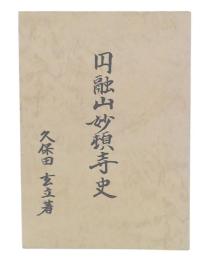 円融山妙頓寺史
久保田玄立著